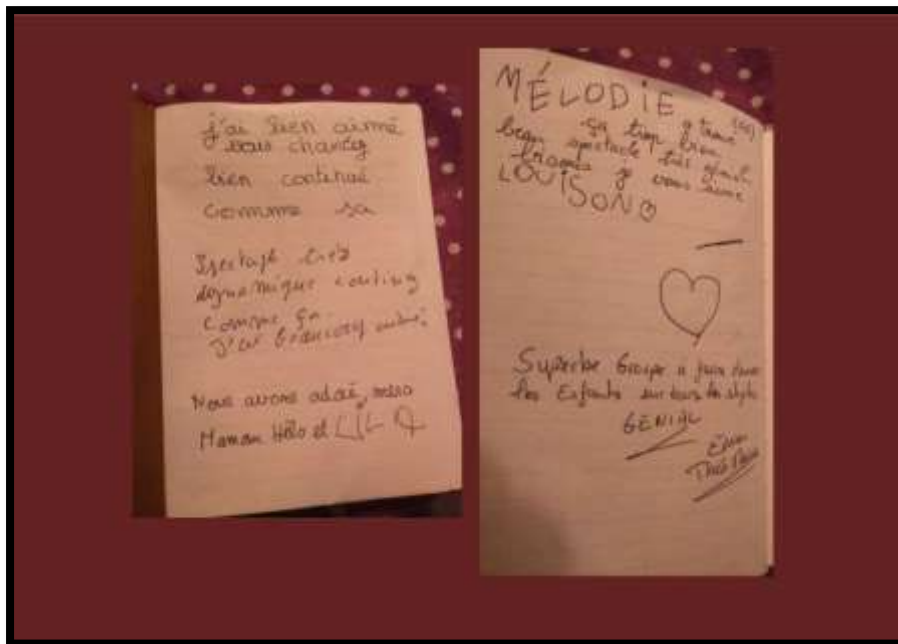 j'ai bien aimé
vous chantez
bien continué
comme sa
Spectacle très
dynamique continuez
comme ça
J'ai beaucoup aimé.
Nous avons adoré, merci
Maman Hélo et LiLA
MÉLODIE a trouvé
ça trop bien
beau spectacle très
bisous je vous aime
LOUiSON
Superbe Groupe a faire
les Enfants sur tous les styles
GÉNIAL